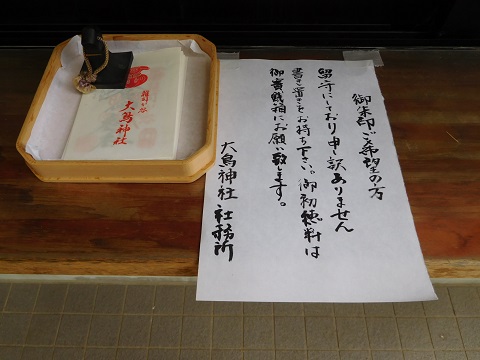 御朱印ご希望の方
留守にしており申訳ありません
書き置きをお持ち下さい。御初穂料は
御賽銭箱にお願い致します。
大鳥神社 社務所
大鳥神社